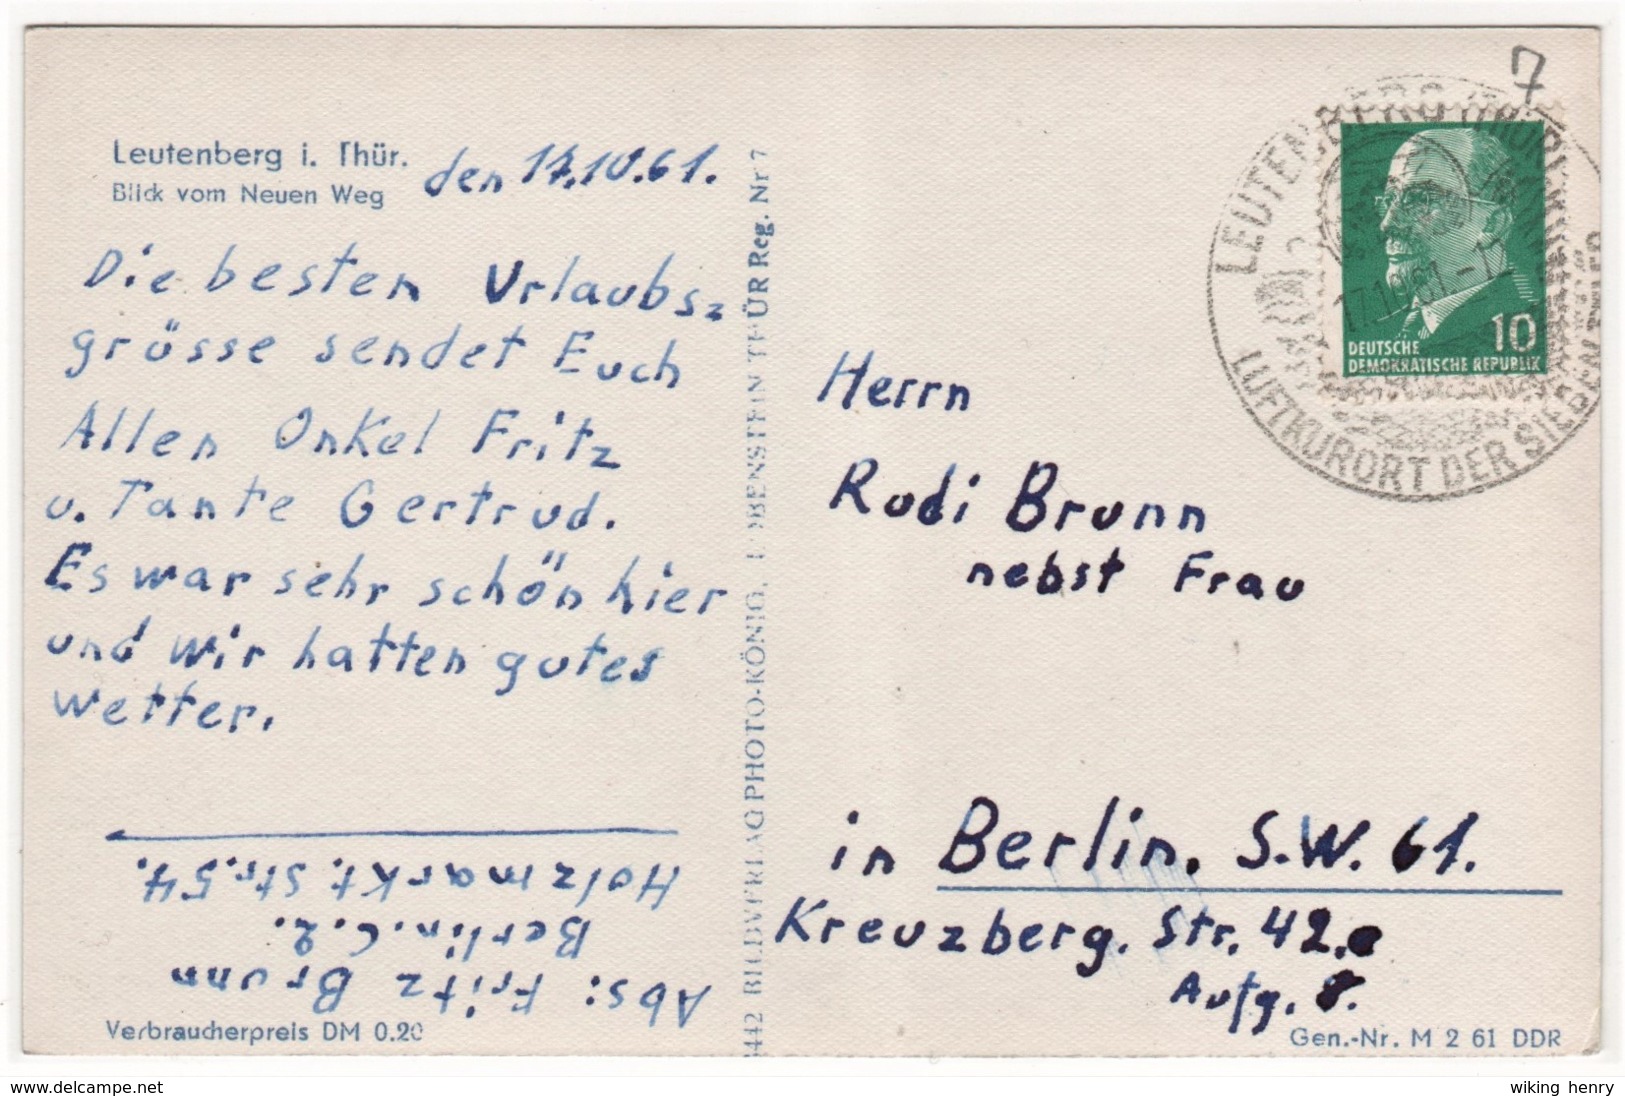 Leutenberg i. Thür.
Blick vom Neuen Weg
den 17.10.61.
Die besten Urlaubs=
grüsse sendet Euch
Allen Onkel Fritz
u. Tante Gertrud.
Es war sehr schön hier
und wir hatten gutes
Wetter.
Abs: Fritz Brunn
Berlin. C. 2.
Holzmarkt. Str. 54.
Verbraucherpreis DM 0.20
3442 BILDVERLAG PHOTO-KÖNIG, LOBENSTEIN THÜR Reg. Nr 7
7
LEUTENBERG (THÜR)
17.10.61.-12
LUFTKURORT DER SIEBEN TÄLER
10
DEUTSCHE
DEMOKRATISCHE REPUBLIK
Herrn
Rudi Brunn
nebst Frau
in Berlin. S.W. 61.
Kreuzberg. Str. 42.
Aufg. 8.
Gen.-Nr. M 2 61 DDR
delcampe.net
wiking henry